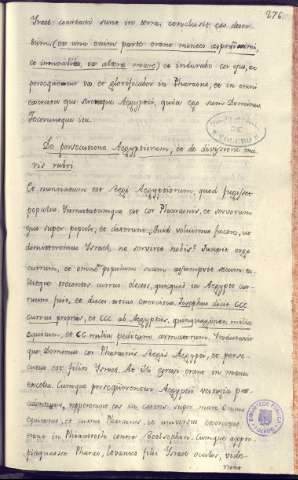 276.
Israel: coarctati sunt in terra, conclusit eos deser-
tum; (ex una enim parte erant montes
et ex altera mare) et indurabo cor ejus, ac
persequetur vos et glorificabor in Pharaone, et in omni
exercitu ejus scientque Aegyptii, quia ego sum Dominus.
Feceruntque ita.
De persecutione Aegyptiorum, et de divisione ma-
ris rubri
Et nuntiatum est Regi Aegyptiorum, quod fugisset
populus. Immutatumque est cor Pharaonis, et servorum
ejus super populo, et dixerunt; Quid voluimus facere, ut
dimitteremus Israel, ne serviret nobis? Junxit ergo
currum, et omnem populum suum assumpsit secum tu-
litque trecentos currus electos, quidquid in Aegypto cur-
ruum fuit, et duces totius exercitus. Josephus dicit,
currus proprios, et CCC ab Aegyptiis, quinquaginta millia
equitum, et CC millia peditum armatorum. Induravit-
que Dominus cor Pharaonis Regis Aegypti, et perse-
cutus est filios Israel. At illi egressi erant in manu
excelsa. Cumque persequerentur Aegyptii vestigia prae-
cedentium, repererunt eos in castris super mare
equitatus, et currus Pharaonis, et universus exercitus
erant in Phihahiroth contra Beelsephon. Cumque appro-
pinquasset Pharao, levantes filii Israel oculos, vide-
runt